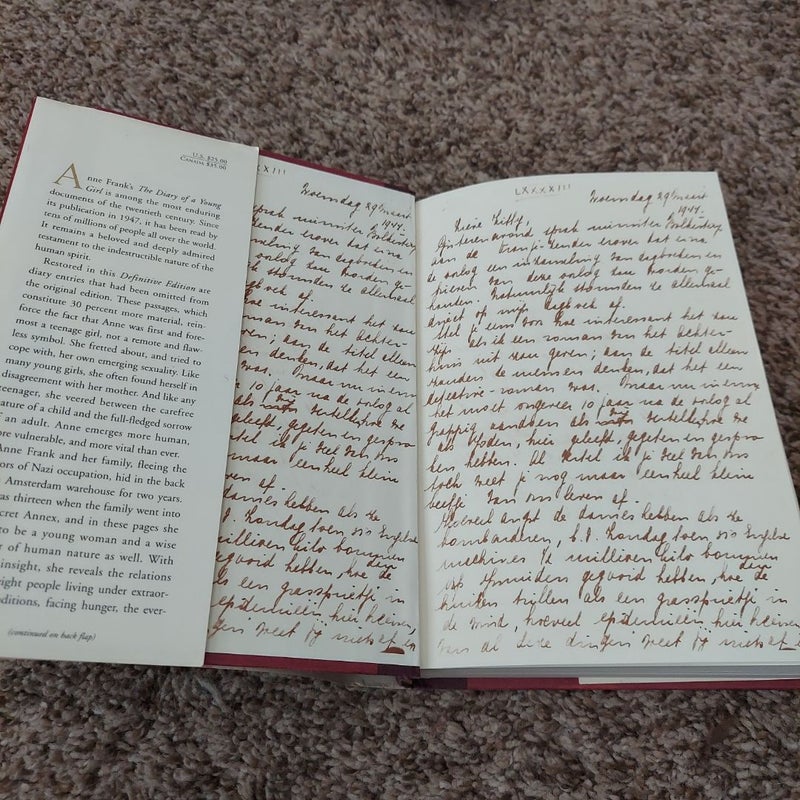 U.S. $25.00
CANADA $35.00
Anne Frank's The Diary of a Young
Girl is among the most enduring
documents of the twentieth century. Since
its publication in 1947, it has been read by
tens of millions of people all over the world.
It remains a beloved and deeply admired
testament to the indestructible nature of the
human spirit.
Restored in this Definitive Edition are
diary entries that had been omitted from
the original edition. These passages, which
constitute 30 percent more material, rein-
force the fact that Anne was first and fore-
most a teenage girl, not a remote and flaw-
less symbol. She fretted about, and tried to
cope with, her own emerging sexuality. Like
many young girls, she often found herself in
disagreement with her mother. And like any
teenager, she veered between the carefree
nature of a child and the full-fledged sorrow
of an adult. Anne emerges more human,
more vulnerable, and more vital than ever.
Anne Frank and her family, fleeing the
ors of Nazi occupation, hid in the back
Amsterdam warehouse for two years.
was thirteen when the family went into
cret Annex, and in these pages she
to be a young woman and a wise
of human nature as well. With
insight, she reveals the relations
ight people living under extraor-
ditions, facing hunger, the ever-
(continued on back flap)
XXIII
Woensdag 29 maart
1944.
sprak minister Bolkestein
zender erover dat er na
inzameling van dagboeken en
oorlog zou worden ge-
stormden ze allemaal
gboek af.
hoe interessant het zou
aan de titel alleen
denken, dat het een
was. Maar nu in ernst
10 jaar na de oorlog al
vertellen hoe we
geleefd, gegeten en gespro-
deel van ons
maar een heel klein
ven af.
dames hebben als ze
Zondag toen 350 Engelse
millioen kilo bommen
gegooid hebben, hoe dan de
als een grassprietje in
epidemieën hier heersen,
weet jij niets af en
LXXXXIII
Woensdag 29 maart
1944.
Lieve Kitty,
Gisterenavond sprak minister Bolkestein
aan de Oranje-zender erover dat er na
de oorlog een inzameling van dagboeken en
brieven van deze oorlog zou worden ge-
houden. Natuurlijk stormden ze allemaal
direct op mijn dagboek af.
Stel je eens voor hoe interessant het zou
zijn als ik een roman van het Achter-
huis uit zou geven; aan de titel alleen
zouden de mensen denken, dat het een
detective-roman was. Maar nu in ernst
het moet ongeveer 10 jaar na de oorlog al
grappig aandoen als vertellen hoe we
als Joden hier geleefd, gegeten en gespro-
ken hebben. Al vertel ik je veel van ons
toch weet je nog maar een heel klein
beetje van ons leven af.
Hoeveel angst de dames hebben als ze
bombarderen, b.v. Zondag toen 350 Engelse
machines ½ millioen kilo bommen
op IJmuiden gegooid hebben, hoe dan de
huizen trillen als een grassprietje in
de wind, hoeveel epidemieën hier heersen,
van al deze dingen weet jij niets af en